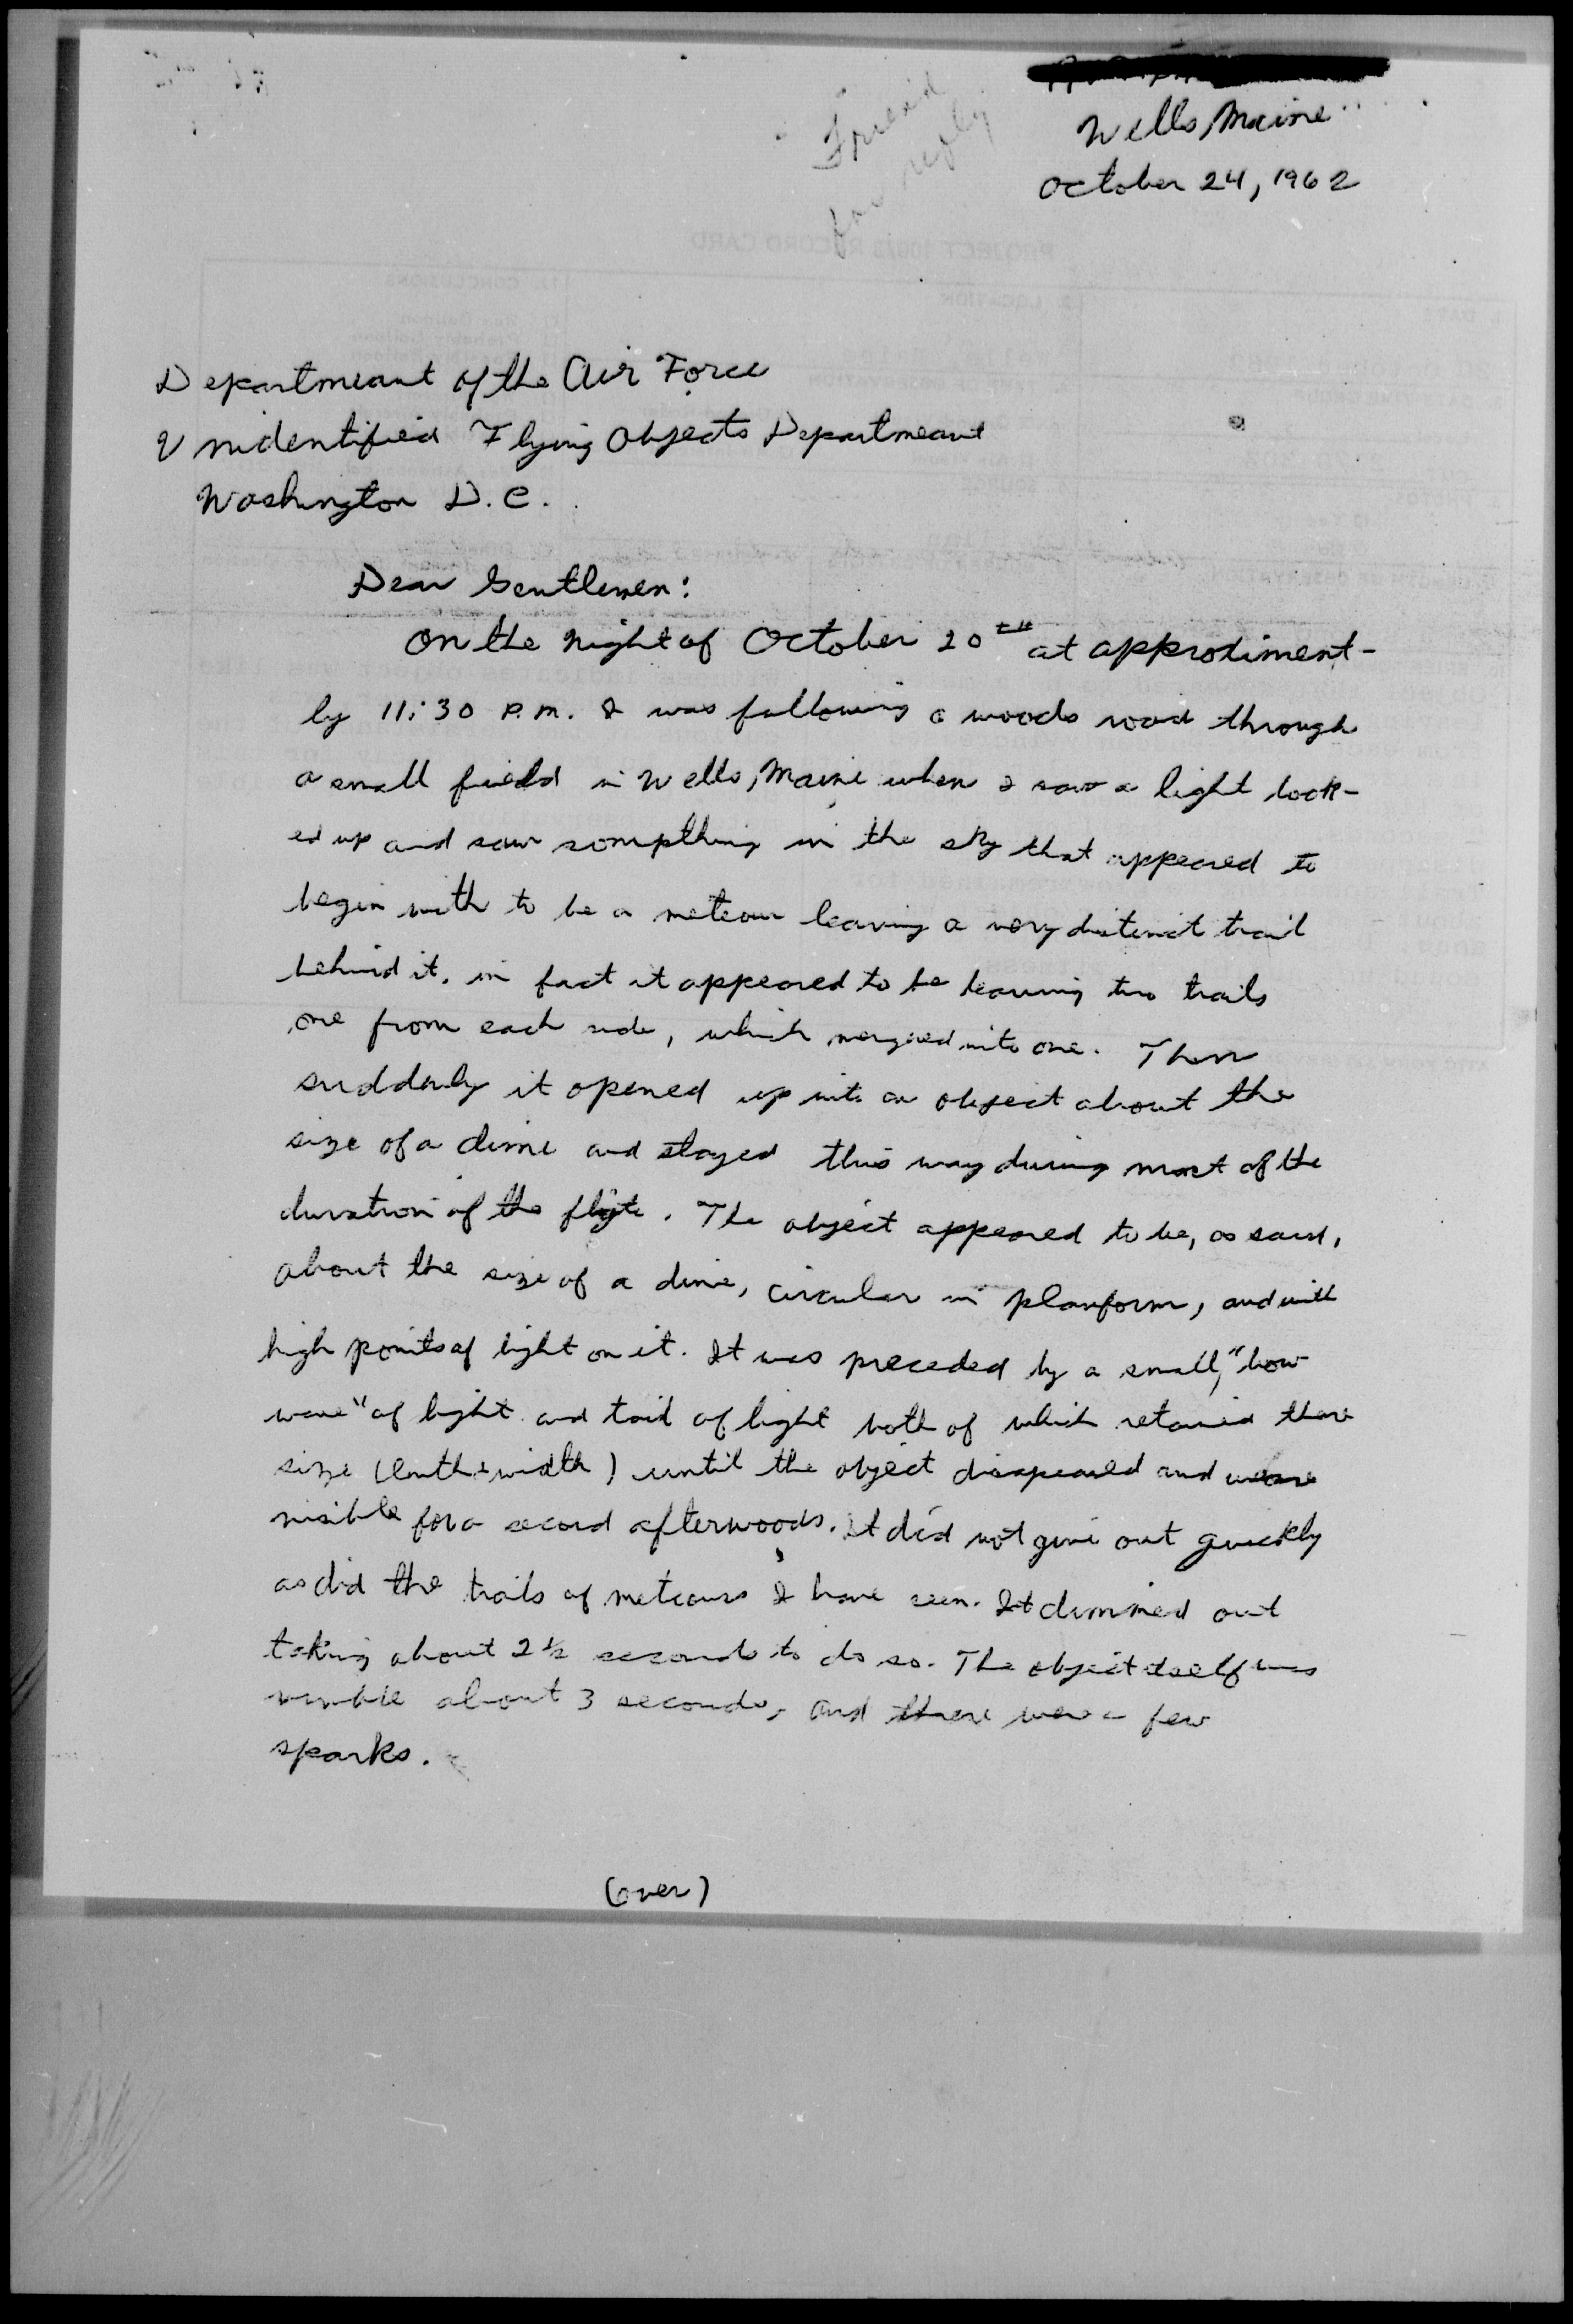 Wells, Maine
October 24, 1962
Friend
for reply
PROJECT 10073 RECORD CARD
Departmeant of the Air Force
Unidentified Flying Objects Departmeant
Washington D.C.
Dear Gentlemen:
On the night of October 20th at approximent-
ly 11:30 P.M. I was following a woods road through
a small field in Wells, Maine when I saw a light look-
ed up and saw sompthing in the sky that appeared to
begin with to be a meteour leaving a very distinct trail
behind it, in fact it appeared to be leaving two trails
one from each side, which merged into one. Then
suddenly it opened up into an object about the
size of a dime and stayed this way during most of the
duration of the flight. The object appeared to be, as said,
about the size of a dime, circular in planform, and with
high points of light on it. It was preceded by a small, "bow
wave" of light and tail of light both of which retained there
size (lenth & width) until the object disapeared and were
visible for a second afterwoods. It did not give out quickly
as did the trails of meteours I have seen. It dimmed out
taking about 2 1/2 seconds to do so. The object itself was
visible about 3 seconds, and there were a few
sparks.
(over)